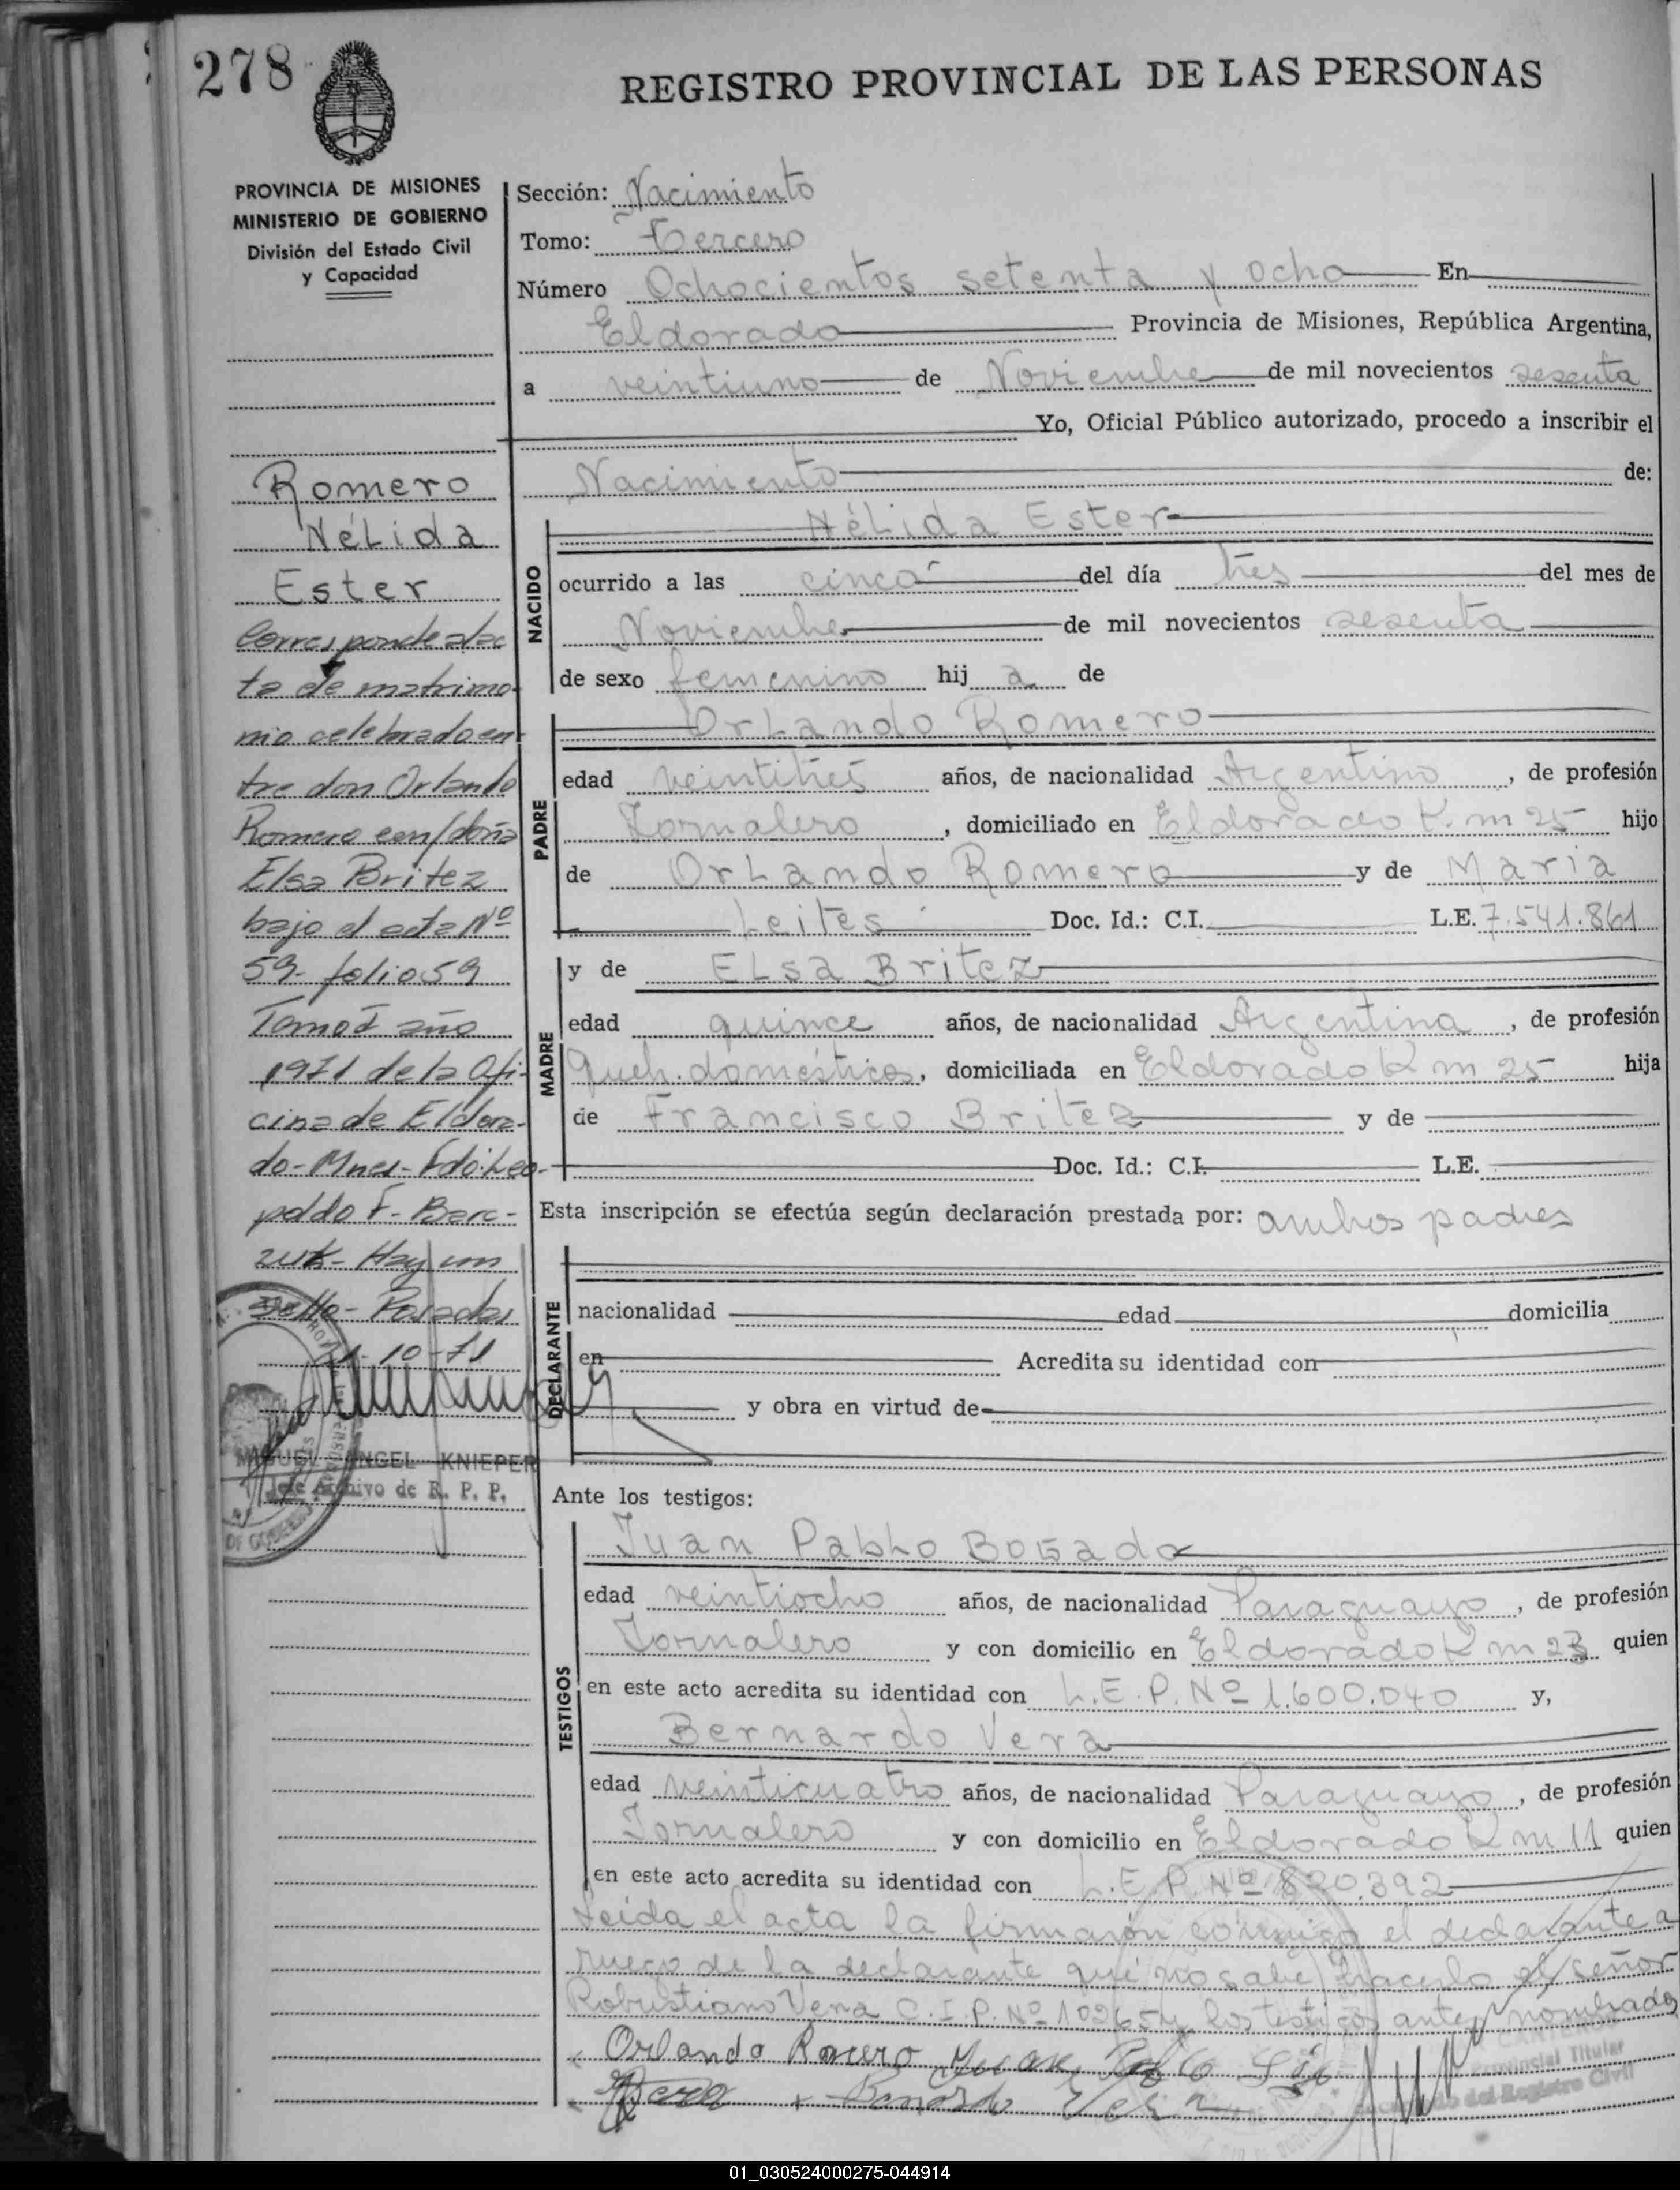 278
REGISTRO PROVINCIAL DE LAS PERSONAS
PROVINCIA DE MISIONES
MINISTERIO DE GOBIERNO
División del Estado Civil
y Capacidad
Romero
Nélida
Ester
Corresponde al ac
ta de matrimo-
nio celebrado en
tre don Orlando
Romero con/doña
Elsa Britez
bajo el acta Nº
59- folio 59
Tomo I año
1971 de la Ofi-
cina de Eldora-
do- Mnes- Fdo: Leo-
poldo F. -
Hay un
Sello- Posadas
10-71
MIGUEL ANGEL KNIEPER
Jefe Archivo de R. P. P.
Sección: Nacimiento
Tomo: Tercero
Número Ochocientos setenta y ocho En
Eldorado Provincia de Misiones, República Argentina,
a veintiuno de Noviembre de mil novecientos sesenta
Yo, Oficial Público autorizado, procedo a inscribir el
Nacimiento de:
NACIDO
Nélida Ester
ocurrido a las cinco del día tres del mes de
Noviembre de mil novecientos sesenta
de sexo femenino hij a de
PADRE
Orlando Romero
edad veintitrés años, de nacionalidad Argentino, de profesión
Jornalero, domiciliado en Eldorado K. m 25 hijo
de Orlando Romero y de Maria
Leites Doc. Id.: C.I. L.E. 7.541.861
MADRE
y de Elsa Britez
edad quince años, de nacionalidad Argentina, de profesión
Queh. domésticos, domiciliada en Eldorado K m 25 hija
de Francisco Britez y de
Doc. Id.: C.I. L.E.
Esta inscripción se efectúa según declaración prestada por: ambos padres
DECLARANTE
nacionalidad edad domicilia
en Acredita su identidad con
y obra en virtud de
Ante los testigos:
TESTIGOS
Juan Pablo Bogado
edad veintiocho años, de nacionalidad Paraguayo, de profesión
Jornalero y con domicilio en Eldorado K m 23 quien
en este acto acredita su identidad con L.E.P. Nº 1.600.040 y,
Bernardo Vera
edad veinticuatro años, de nacionalidad Paraguayo, de profesión
Jornalero y con domicilio en Eldorado K m 11 quien
en este acto acredita su identidad con L.E.P. Nº 820.392
Leida el acta la firmaron conmigo el declarante a
ruego de la declarante que no sabe hacerlo el señor
Robustiano Vera C.I.P. Nº los testigos antes nombrados
Orlando Romero Juan Pablo
Vera Bernardo Vera
Provincial Titular
del Registro Civil
01_030524000275-044914